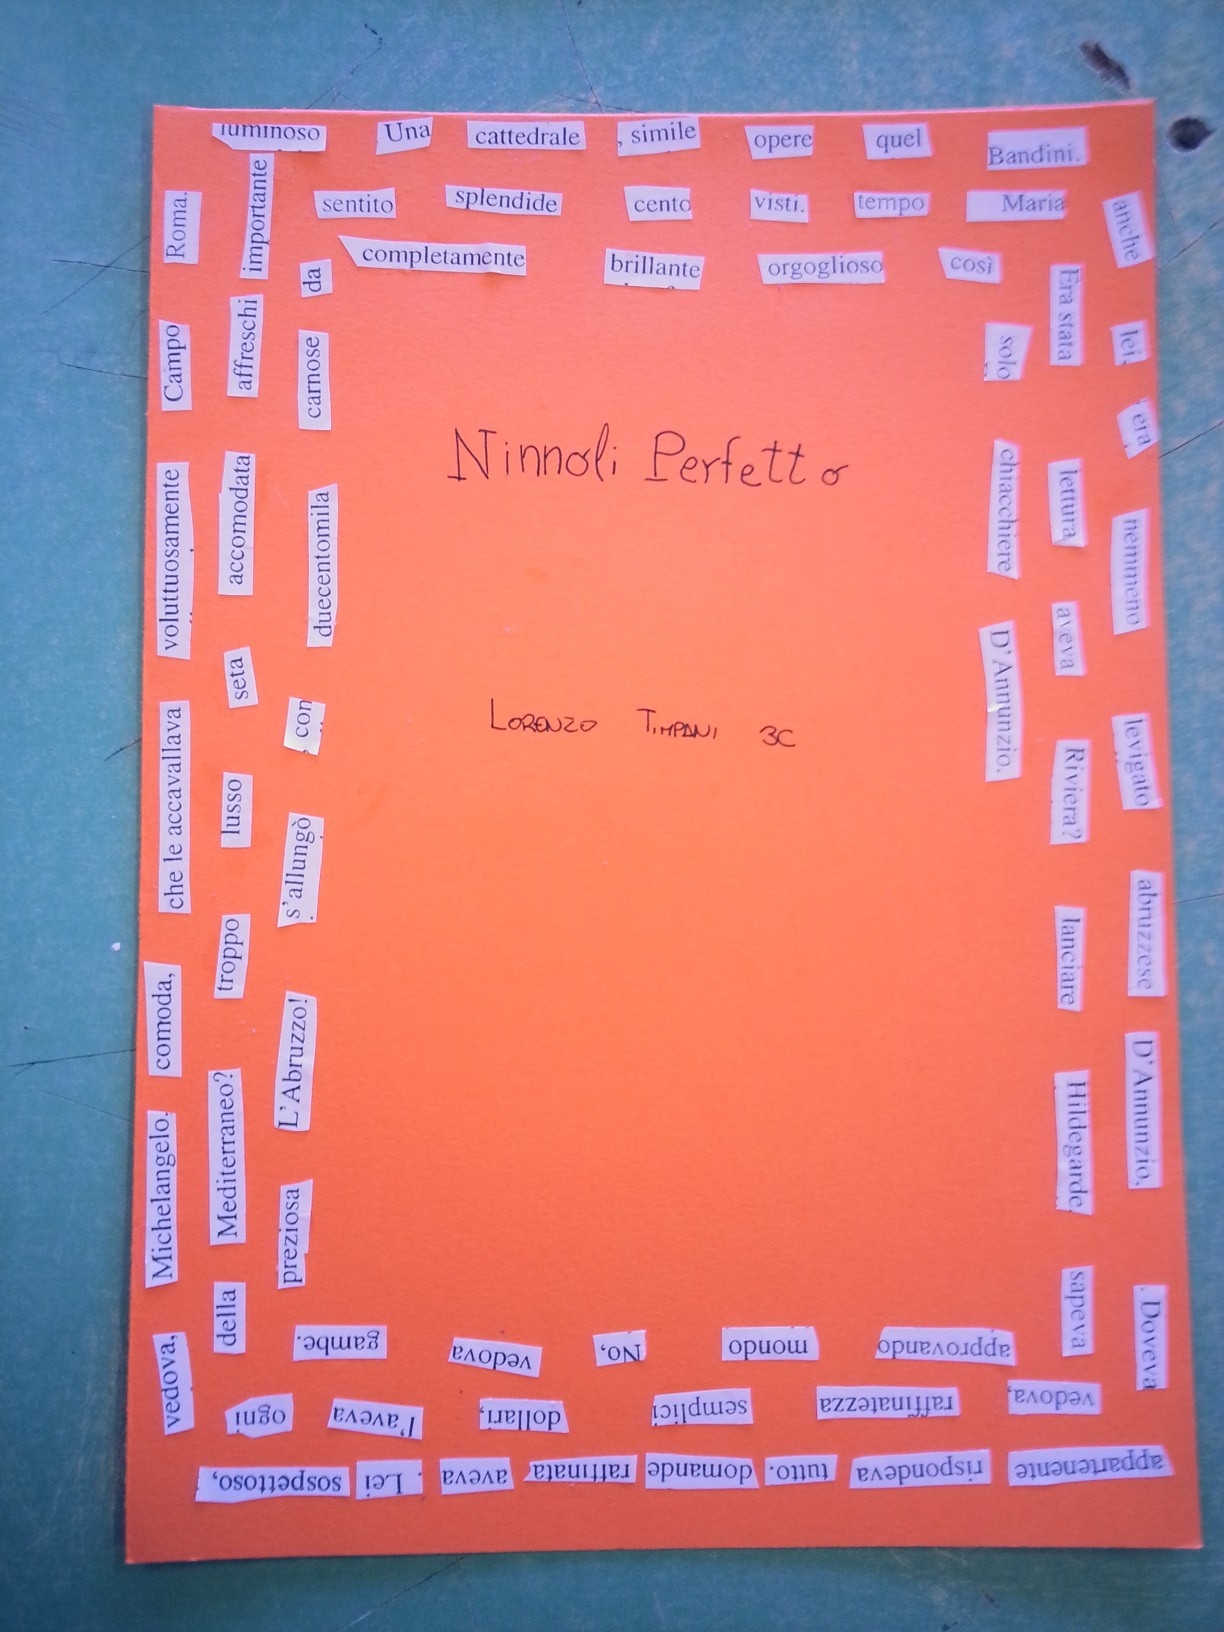 luminoso Una cattedrale , simile opere quel Bandini.
sentito splendide cento visti. tempo Maria
completamente brillante orgoglioso così
anche lei, era nemmeno levigato abruzzese D'Annunzio. . Doveva
Era stata lettura aveva Riviera? lanciare Hildegarde sapeva
solo chiacchiere D'Annunzio.
Ninnoli Perfetto
LORENZO TIMPANI 3C
appartenente rispondeva tutto. domande raffinata aveva . Lei sospettoso,
vedova, raffinatezza semplici dollari, l'aveva ogni
approvando mondo No, vedova gambe.
vedova, Michelangelo. comoda, che le accavallava voluttuosamente Campo Roma.
della Mediterraneo? troppo lusso seta accomodata affreschi importante
preziosa L'Abruzzo! s'allungò , con duecentomila carnose da